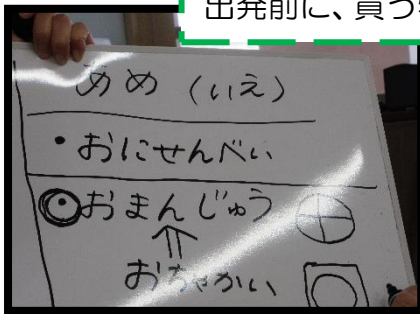 出発前に、買う
あめ（いえ）
・おにせんべい
おまんじゅう
⇑
おちゃかい